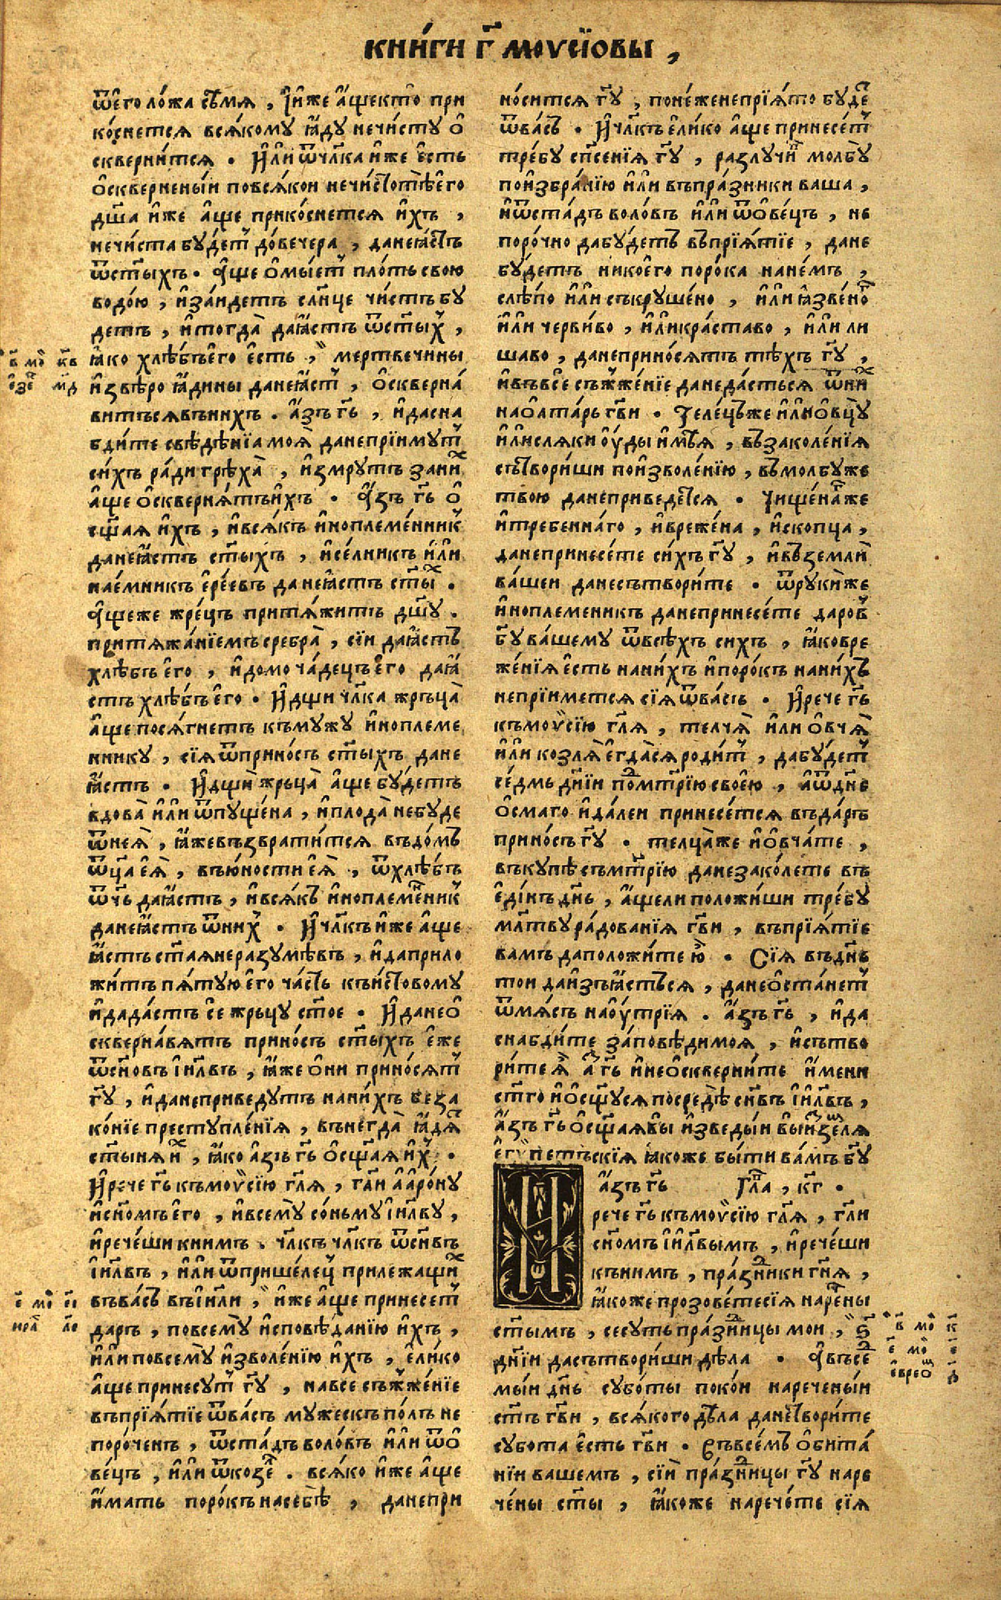 кни́ги г҃ моѵсїовы ,
ѿ є҆го ло́жа сѣ́мѧ , и҆́же а҆́ще кто̀ при
ко́снетсѧ всѧ́кому га́ду нечи́сту ѡ҆
скверни́тсѧ . И҆́ли ѿ чл҃ка и҆́же є҆́сть
ѡ҆скверне́ныи по всѧ́кои нечⷭ҇тотѣ є҆го
дш҃а и҆́же а҆́ще прико́снетсѧ и҆́хъ ,
нечи́ста бу́детъ до́ вечера , да не ꙗ҆́стъ
ѿ ст҃ы́хъ . А҆́ще ѡ҆мы́етъ пло́ть свою
водо́ю , и҆ за́идетъ сл҃нце чи́стъ бу
детъ , и҆ тогда̀ да ꙗ҆́стъ ѿ ст҃ы́хъ ,
ꙗ҆́ко хлѣ́бъ є҆го є҆сть , мертвечи́ны
и҆ звѣ́роꙗ҆дины да не ꙗ҆́стъ , ѡ҆скверна́
витъсѧ в ни́хъ . А҆́зъ гь҃ , и҆ да сна
бди́те свѣдѣ́нїа моѧ̀ да не прїи́мутъ
си́хъ ра́ди грѣха̀ , и҆ змру́тъ за ни́хъ
а҆́ще ѡ҆сквернѧ́тъ и҆́хъ . А҆́зъ гь҃ ѡ҆
сщ҃аѧ и҆́хъ , и҆ всѧ́къ и҆ноплеме́нникъ
да не ꙗ҆́стъ ст҃ы́хъ , и҆ се́лникъ и҆́ли
нае́мникъ є҆ре́евъ да не ꙗ҆́стъ ст҃ы́хъ .
А҆́ще же жре́цъ притѧ́житъ дш҃у .
притѧжа́нїемъ сребра̀ , сїи да ꙗ҆́стъ
хлѣ́бъ є҆го , и҆ домоча́децъ є҆го да ꙗ҆́
стъ хлѣ́бъ є҆го . И҆ дщи чл҃ка жръца̀
а҆́ще посѧ́гнетъ къ му́жу и҆ноплеме
ннику , сїѧ ѿ прино́съ ст҃ы́хъ да не
ꙗ҆́стъ . И҆ дщѝ жръца̀ а҆́ще бу́детъ
вдова̀ и҆́ли ѿпуще́на , и҆ плода̀ не буде
ѿ неѧ̀ , ꙗ҆́же възврати́тсѧ въ до́мъ
ѿц҃а є҆ѧ̀ , въ ю҆́ности є҆ѧ̀ , ѿ хлѣ́бъ
ѿч҃ь да ꙗ҆́стъ , и҆ всѧ́къ и҆ноплеме́нникъ
да не ꙗ҆́стъ ѿ ни́хъ . И҆ чл҃къ и҆́же а҆́ще
ꙗ҆́стъ ст҃аѧ не разумѣ́въ , и҆ да прило
жи́тъ пѧ́тую є҆го ча́сть къ и҆́стовому
и҆ да да́стъ се жръцу ст҃ое . И҆ да не ѡ҆
скверна́вѧтъ прино́съ ст҃ы́хъ є҆́же
ѿ сн҃овъ і҆и҃лвъ , ꙗ҆́же ѡ҆ни прино́сѧтъ
гу҃ , и҆ да не приведу́тъ на ни́хъ беза
ко́нїе преступле́нїѧ , внегда̀ ꙗ҆дѧ́тъ
ст҃ы́нѧ и҆́хъ , ꙗ҆́ко а҆́зъ гь҃ ѡ҆сщ҃аѧ и҆́хъ .
И҆ рече гь҃ къ моѵсїю гл҃ѧ , гл҃и а҆аро́ну
и҆ сн҃омъ є҆го , и҆ всему̀ со́ньму і҆и҃лву ,
и҆ рече́ши к ни́мъ . чл҃къ чл҃къ ѿ сн҃въ
і҆и҃лвъ , и҆́ли ѿ прише́лецъ прилежащи́хъ
въ ва́съ въ і҆и҃ли , и҆́же а҆́ще принесе́тъ
да́ръ , по всему̀ и҆сповѣ́данїю и҆́хъ ,
и҆́ли по всему̀ и҆зволе́нїю и҆́хъ , є҆ли́ко
а҆́ще принесу́тъ гу҃ , на все съжже́нїе
въ прїѧ́тїе ѿ ва́съ му́жескъ по́лъ не
поро́ченъ , ѿ ста́дъ воло́въ и҆́ли ѿ ѡ҆
ве́цъ , и҆́ли ѿ козъ . всѧ́ко и҆́же а҆́ще
и҆́мать поро́къ на себѣ̀ , да не при
но́ситсѧ гу҃ , поне́же не прїѧ́то буде
ѿ ва́съ . И҆ чл҃къ є҆ли́ко а҆́ще принесе́тъ
тре́бу сп҃се́нїѧ гу҃ , разлучи́въ молбу
по и҆збра́нїю и҆́ли въ пра́зники ваша ,
и҆ ѿ ста́дъ воло́въ и҆́ли ѿ ѡ҆ве́цъ , не
поро́чно да бу́детъ въ прїѧ́тїе , да не
бу́детъ никоего поро́ка на не́мъ ,
слѣ́по и҆́ли съкруше́но , и҆́ли ꙗ҆зве́но
и҆́ли черви́во , и҆́ли кра́ставо , и҆́ли ли
шаво , да не прино́сѧтъ тѣ́хъ гу҃ ,
и҆ въ все съжже́нїе да не да́стьсѧ ѿ ни́хъ
на ѡ҆лта́рь гв҃и . Теле́цъ же и҆́ли ѡ҆вцу̀
и҆́ли слѧки ѹ҆́ды и҆мы́ѧ , въ заколе́нїѧ
сътвори́ши по и҆зволе́нїю , въ молбу же
твою да не приведе́тсѧ . Чище́на же
и҆ требенна́го , и҆ вреже́на , и҆ скопца ,
да не принесе́те си́хъ гу҃ , и҆ въ землѝ
ва́шеи да не сътвори́те . ѿ руки́ же
и҆ноплеменикъ да не принесе́те даровъ
бг҃у ва́шему ѿ всѣ́хъ сихъ , ꙗ҆́ко вре
же́нїѧ є҆́сть на ни́хъ и҆ поро́къ на ни́хъ
не прїи́метсѧ сїѧ ѿ ва́съ . И҆ рече гь҃
къ моѵсїю гл҃ѧ , телчѧ̀ и҆ли ѡ҆вчѧ̀
и҆́ли козлѧ̀ є҆гда́ сѧ роди́тъ , да бу́детъ
се́дмь дн҃и́и под мт҃рїю свое́ю , а҆ ѿ дн҃е
ѡ҆смаго и҆ да́леи принесе́тсѧ въ да́ръ
прино́съ гу҃ . телца́ же и҆ ѡ҆вча́те ,
въ ку́пѣ съ мт҃рїю да не зако́лете въ
є҆ди́нъ дн҃ь , а҆́ще ли поло́жиши тре́бу
мл҃тву ра́дованїѧ гв҃и , въ прїѧ́тїе
ва́мъ да поло́жите ю҆̀ . Сїѧ̀ въ дн҃ь
тои да и҆зъꙗ҆́стьсѧ , да не ѡ҆ста́нетъ
ѿ мѧ́съ на ѹ҆́трїѧ . А҆́зъ гь҃ , и҆ да
снабди́те за́повѣди моѧ , и҆ сътво
ри́те ѧ҆̀ а҆́зъ гь҃ и҆ не ѡ҆скверни́те и҆́мени
ст҃го и҆ ѡ҆сщ҃усѧ посредѣ̀ сн҃въ і҆и҃лвъ ,
а҆́зъ гь҃ ѡ҆сщ҃аѧ вы и҆зведы́и вы и҆з землѧ
є҆гѵ́петьскїѧ ꙗ҆́коже бы́ти ва́мъ бг҃у
а҆́зъ гь҃ Гл҃ва , кг҃ .
И҆ рече гь҃ къ моѵсїю гл҃ѧ , гл҃и
сн҃омъ і҆и҃лвымъ , и҆ рече́ши
къ ни́мъ , пра́здники гн҃ѧ ,
ꙗ҆́коже прозове́те сїѧ наре́чены
ст҃ы́мъ , се су́ть пра́здницы мои , ѕ҃
дн҃и́и да сътвори́ши дѣ́ла . А҆ въ се
мы́и дн҃ь субо́ты поко́и нарече́ныи
ст҃ъ гв҃и , всѧ́кого дѣ́ла да не твори́те
субота є҆́сть гв҃и . Въ всемъ ѡ҆бита́
нїи вашемъ , сїи пра́здницы гу҃ наре
че́ны ст҃ы , ꙗ҆́коже нарече́те сїѧ